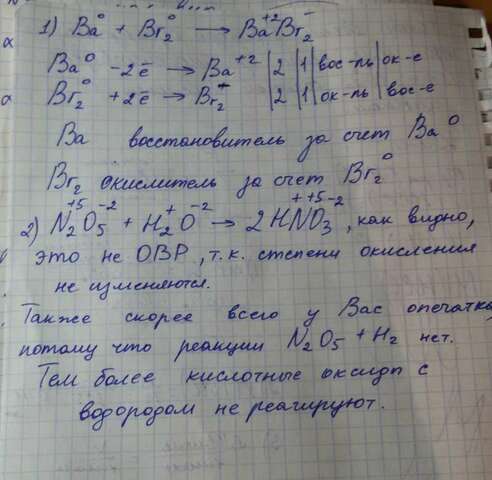 1) Ba⁰ + Br₂⁰ → Ba⁺²Br₂⁻
Ba⁰ -2ē → Ba⁺² | 2 | 1 | вос-ль | ок-е
Br₂⁰ +2ē → Br₂⁻ | 2 | 1 | ок-ль | вос-е
Ba восстановитель за счет Ba⁰
Br₂ окислитель за счет Br₂⁰
2) N₂⁺⁵O₅⁻² + H₂⁺O⁻² → 2H⁺N⁺⁵O₃⁻², как видно,
это не ОВР, т.к. степени окисления
не изменяются.
Также скорее всего у Вас опечатка,
потому что реакции N₂O₅ + H₂ нет.
Тем более кислотные оксиды с
водородом не реагируют.